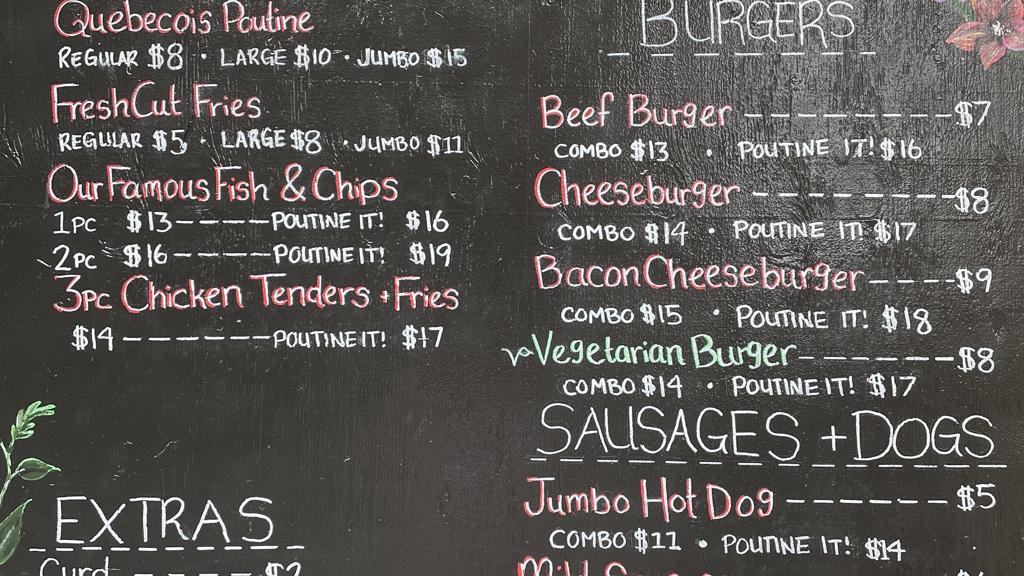 Quebecois Poutine
REGULAR $8 · LARGE $10 · JUMBO $15
Fresh Cut Fries
REGULAR $5 · LARGE $8 · JUMBO $11
Our Famous Fish & Chips
1PC $13-----POUTINE IT! $16
2PC $16-----POUTINE IT! $19
3PC Chicken Tenders + Fries
$14-------POUTINE IT! $17
EXTRAS
Curd ---- $2
BURGERS
Beef Burger --------$7
COMBO $13 · POUTINE IT! $16
Cheeseburger --------$8
COMBO $14 · POUTINE IT! $17
Bacon Cheeseburger ----$9
COMBO $15 · POUTINE IT! $18
Vegetarian Burger------$8
COMBO $14 · POUTINE IT! $17
SAUSAGES + DOGS
Jumbo Hot Dog ------ $5
COMBO $11 · POUTINE IT! $14
Mild